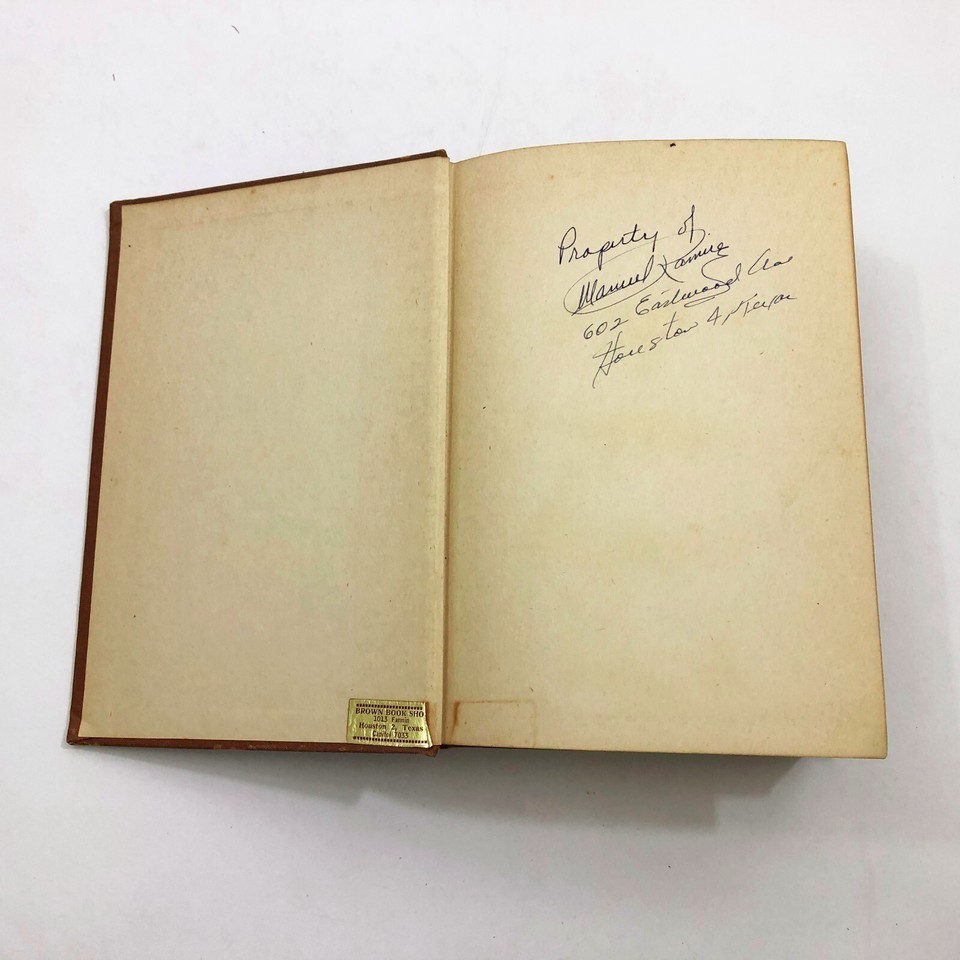 BROWN BOOK SHO
1013 Fannin
Houston 2, Texas
Capitol 7033
Property of.
Manuel Ramirez
602 Eastwood Ave
Houston 4, Texas